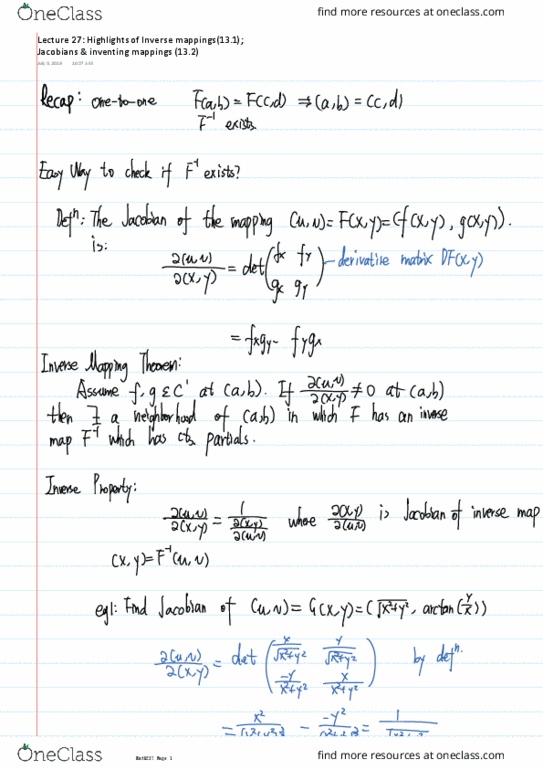 OneClass
find more resources at oneclass.com
Lecture 27: Highlights of Inverse mappings(13.1) ;
Jacobians & inventing mappings (13.2)
Recap: one-to-one F(a,b) = F(c,d) ⇒ (a,b) = (c,d)
F⁻¹ exists.
Easy Way to check if F⁻¹ exists?
Defⁿ: The Jacobian of the mapping (u,v) = F(x,y) = (f(x,y), g(x,y)).
is:
∂(u,v)/∂(x,y) = det(fx fy
gx gy) - derivative matrix DF(x,y)
= fxgy - fygx
Inverse Mapping Theorem:
Assume f, g ∈ C' at (a,b). If ∂(u,v)/∂(x,y) ≠ 0 at (a,b)
then ∃ a neighborhood of (a,b) in which F has an inverse
map F⁻¹ which has cts partials.
Inverse Property:
∂(u,v)/∂(x,y) = 1/(∂(x,y)/∂(u,v)) where ∂(x,y)/∂(u,v) is Jacobian of inverse map
(x,y) = F⁻¹(u,v)
eg1: Find Jacobian of (u,v) = G(x,y) = (√x²+y², arctan(y/x))
∂(u,v)/∂(x,y) = det(x/√x²+y² y/√x²+y²
-y/x²+y² x/x²+y²) by defⁿ.
= x² - -y² = 1
OneClass
Math237 Page 1
find more resources at oneclass.com